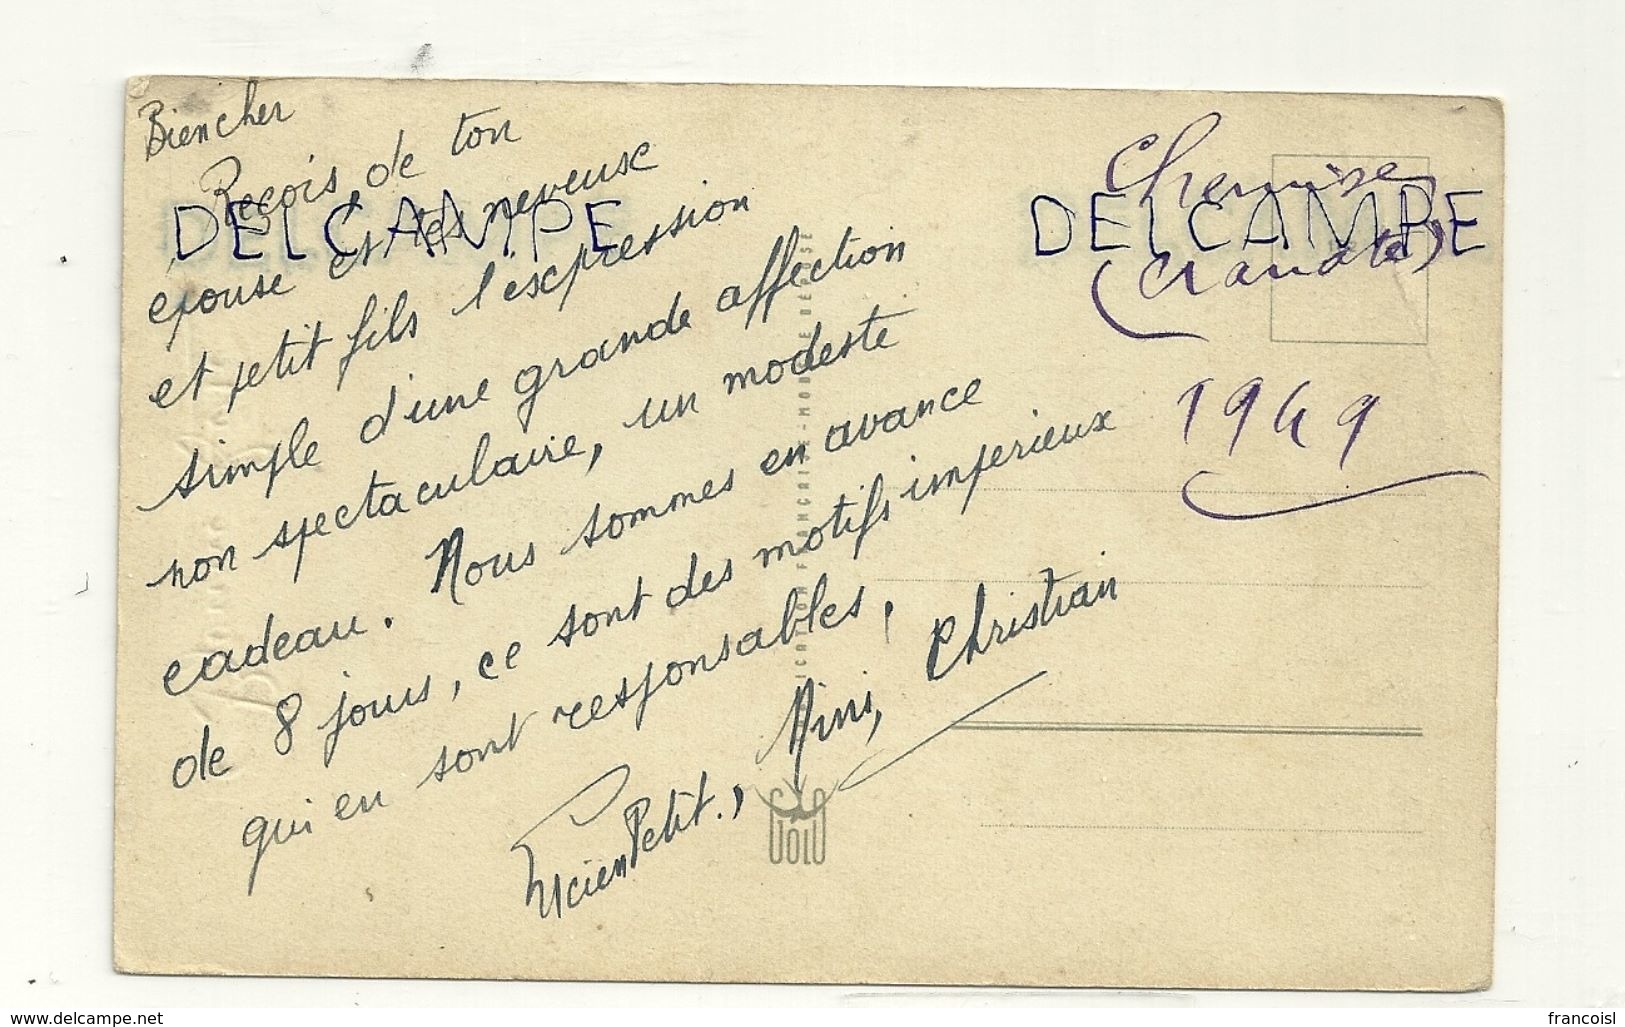 Bien cher
Reçois de ton
épouse et tes neveux
et petit fils l'expression
simple d'une grande affection
non spectaculaire, un modeste
cadeau. Nous sommes en avance
de 8 jours, ce sont des motifs imperieux
qui en sont responsables,
Lucien Petit., Mini, Christian
DELCAMPE
DELCAMPE
Chemise
(cravate)
1949
JOLU
www.delcampe.net
francoisl